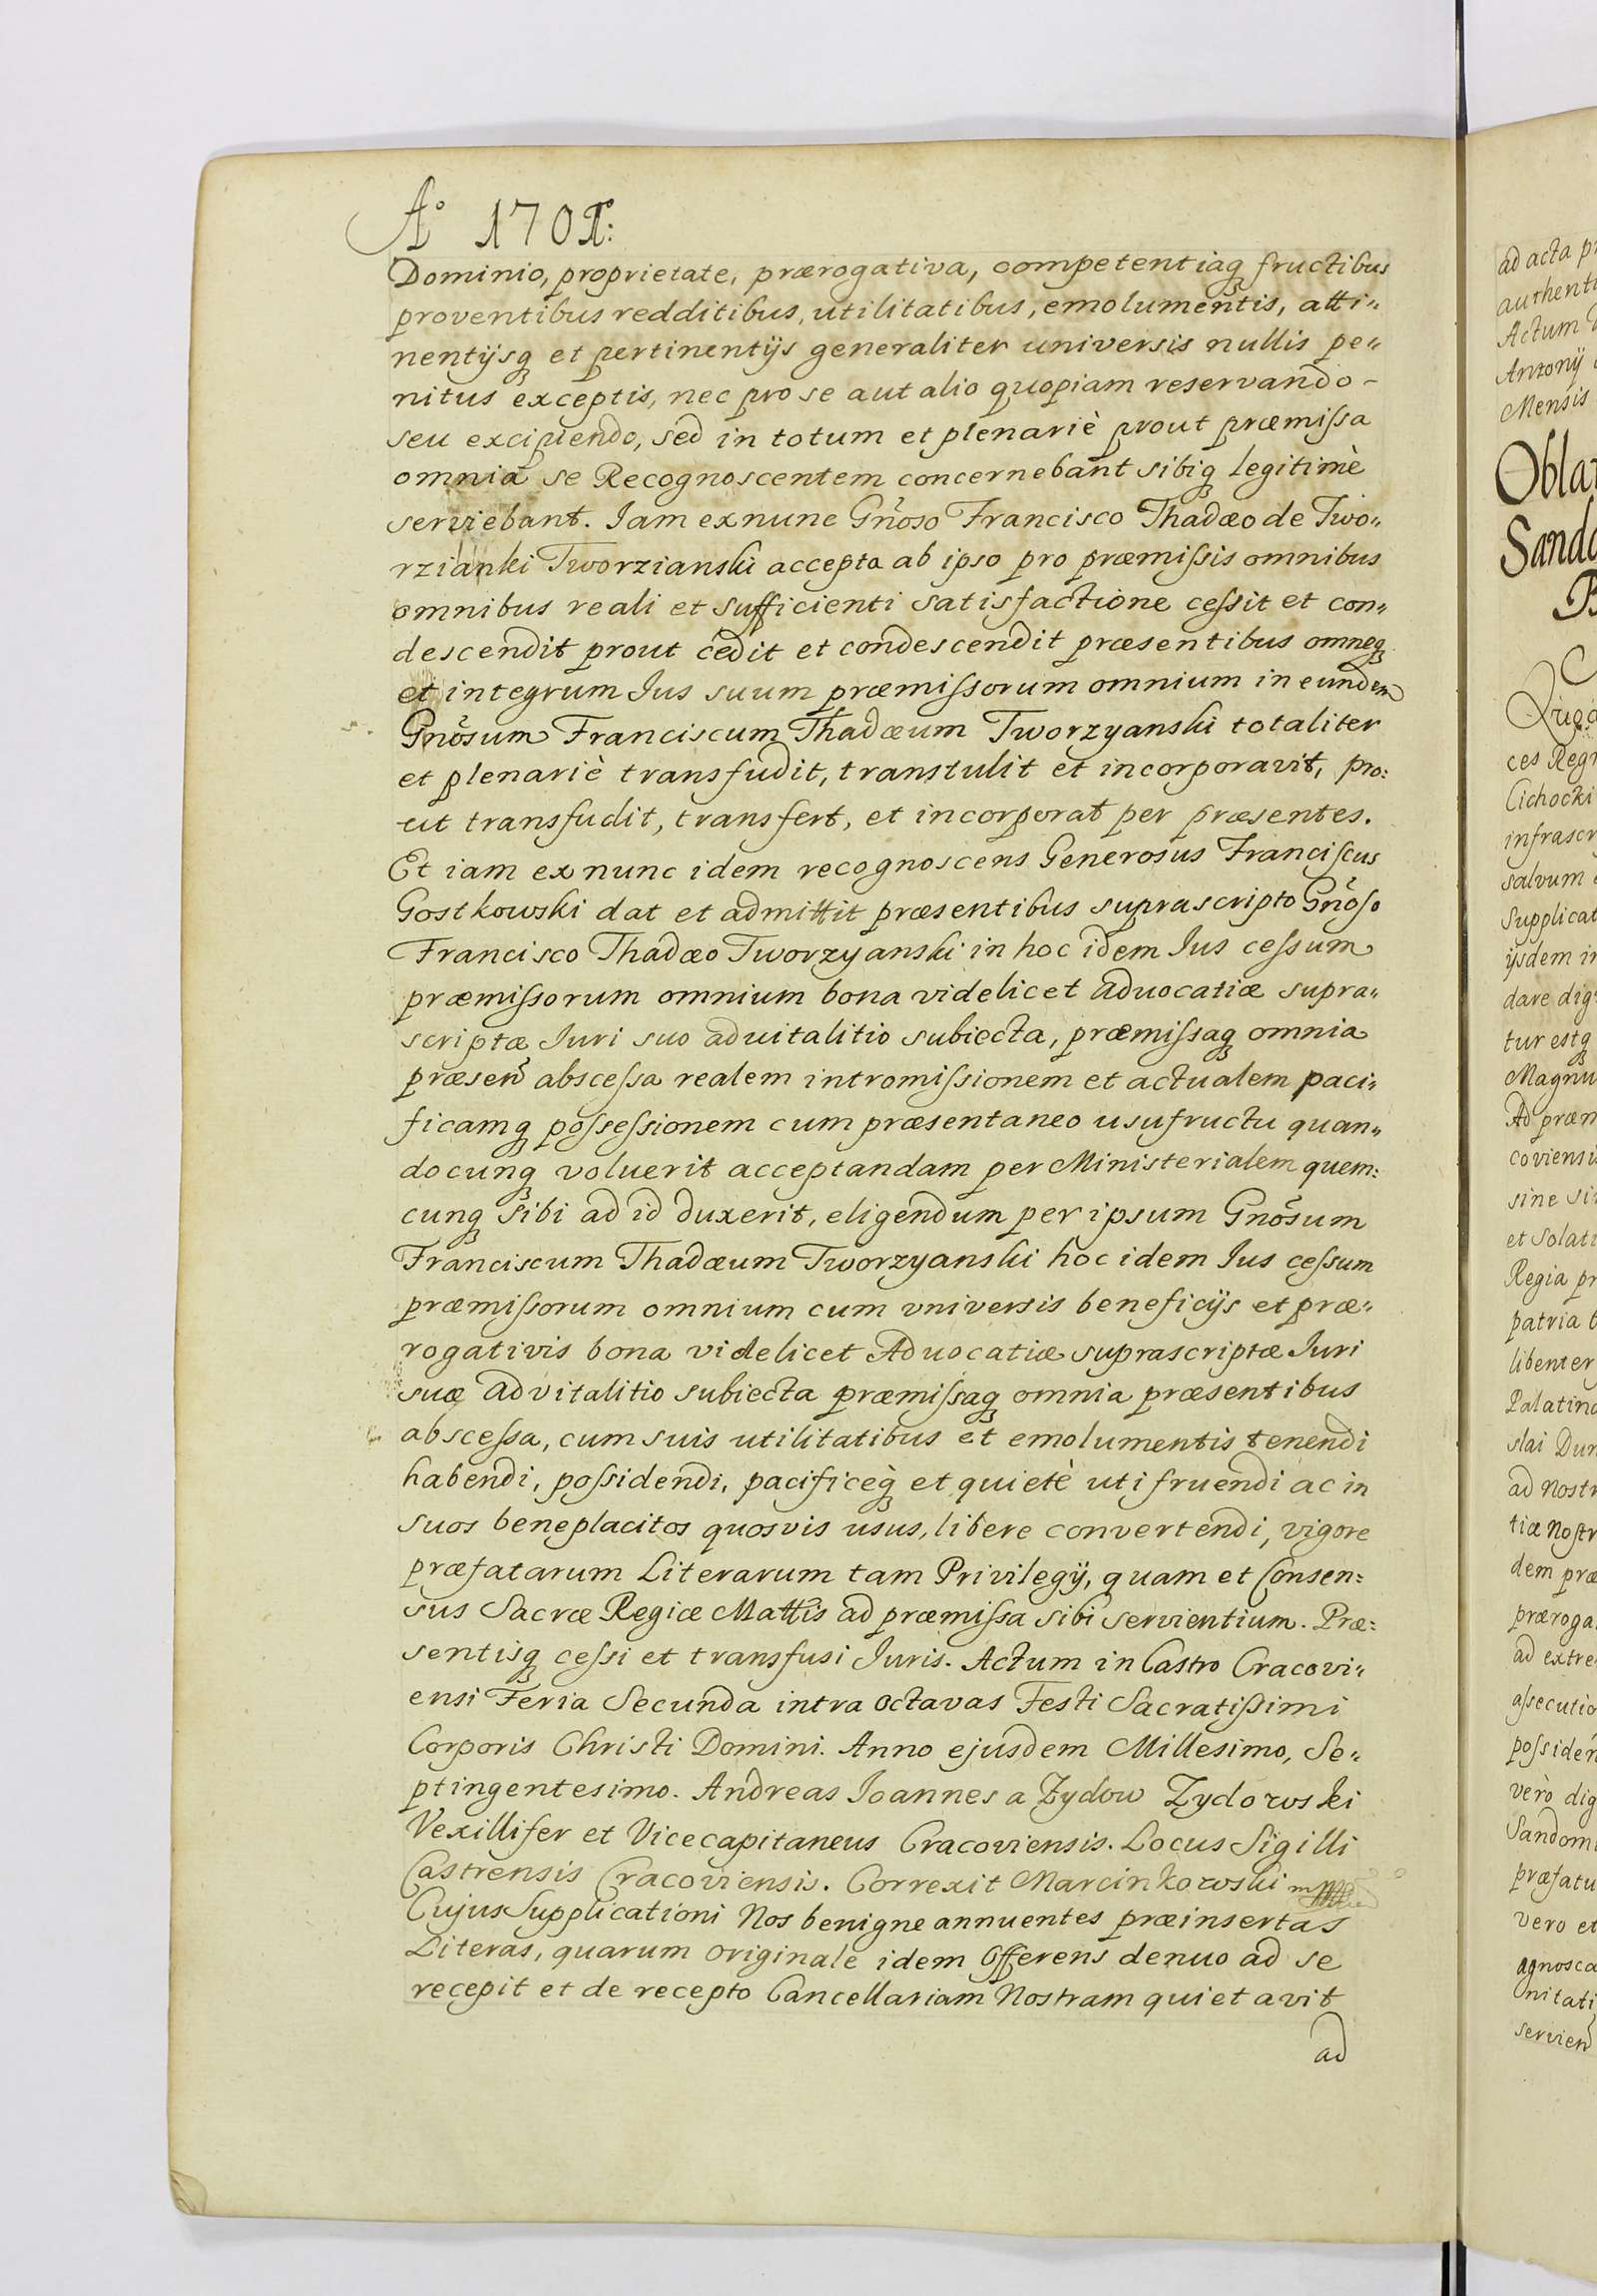 Aº 1701:
Dominio, proprietate, prærogativa, competentiaq fructibus
proventibus redditibus, utilitatibus, emolumentis, atti„
nentijsq et pertinentijs generaliter universis nullis pe„
nitus exceptis, nec pro se aut alio quopiam reservando -
seu excipiendo, sed in totum et plenariè prout præmissa
omnia se Recognoscentem concernebant sibiq legitimè
serviebant. Iam exnunc Gñoso Francisco Thadæo de Two„
rzianki Tworzianski accepta ab ipso pro præmissis omnibus
omnibus reali et sufficienti satisfactione cessit et con„
descendit prout cedit et condescendit præsentibus omneq
et integrum Ius suum præmissorum omnium in eundem
Gnõsum Franciscum Thadæum Tworzyanski totaliter
et plenariè transfudit, transtulit et incorporavit, pro:
ut transfudit, transfert, et incorporat per præsentes.
Et iam exnunc idem recognoscens Generosus Franciscus
Gostkowski dat et admittit præsentibus suprascripto Gnõso
Francisco Thadæo Tworzyanski in hoc idem Ius cessum
præmissorum omnium bona videlicet advocatiæ supra„
scriptæ Iuri suo advitalitio subiecta, præmissaq omnia
præsen̄ abscessa realem intromissionem et actualem paci„
ficamq possessionem cum præsentaneo usufructu quan„
docunq voluerit acceptandam per Ministerialem quem:
cunq sibi ad id duxerit, eligendum per ipsum Gnõsum
Franciscum Thadæum Tworzyanski hoc idem Ius cessum
præmissorum omnium cum vniversis beneficijs et præ„
rogativis bona videlicet Advocatiæ suprascriptæ Iuri
suæ advitalitio subiecta præmissaq omnia præsentibus
abscessa, cum suis utilitatibus et emolumentis tenendi
habendi, possidendi, pacificeq et quietè utifruendi ac in
suos beneplacitos quosvis usus, libere convertendi, vigore
præfatarum Literarum tam Privilegij, quam et Consen:
sus Sacræ Regiæ Mattis ad præmissa sibi servientium. Præ:
sentisq cessi et transfusi Iuris. Actum in Castro Cracovi„
ensi Feria Secunda intra octavas Festi Sacratissimi
Corporis Christi Domini. Anno ejusdem Millesimo, Se„
ptingentesimo. Andreas Ioannes a Zydow Zydowski
Vexillifer et Vicecapitaneus Cracoviensis. Locus Sigilli
Castrensis Cracoviensis. Correxit Marcinkowski
Cujus Supplicationi Nos benigne annuentes præinsertas
Literas, quarum originale idem Offerens denuo ad se
recepit et de recepto Cancellariam Nostram quietavit
ad
ad acta
Actum
Antonij
Mensis
ces
Cichocki
salvum
ijsdem
tur estq
sine
Regia
libenter
ad
ad
vero et